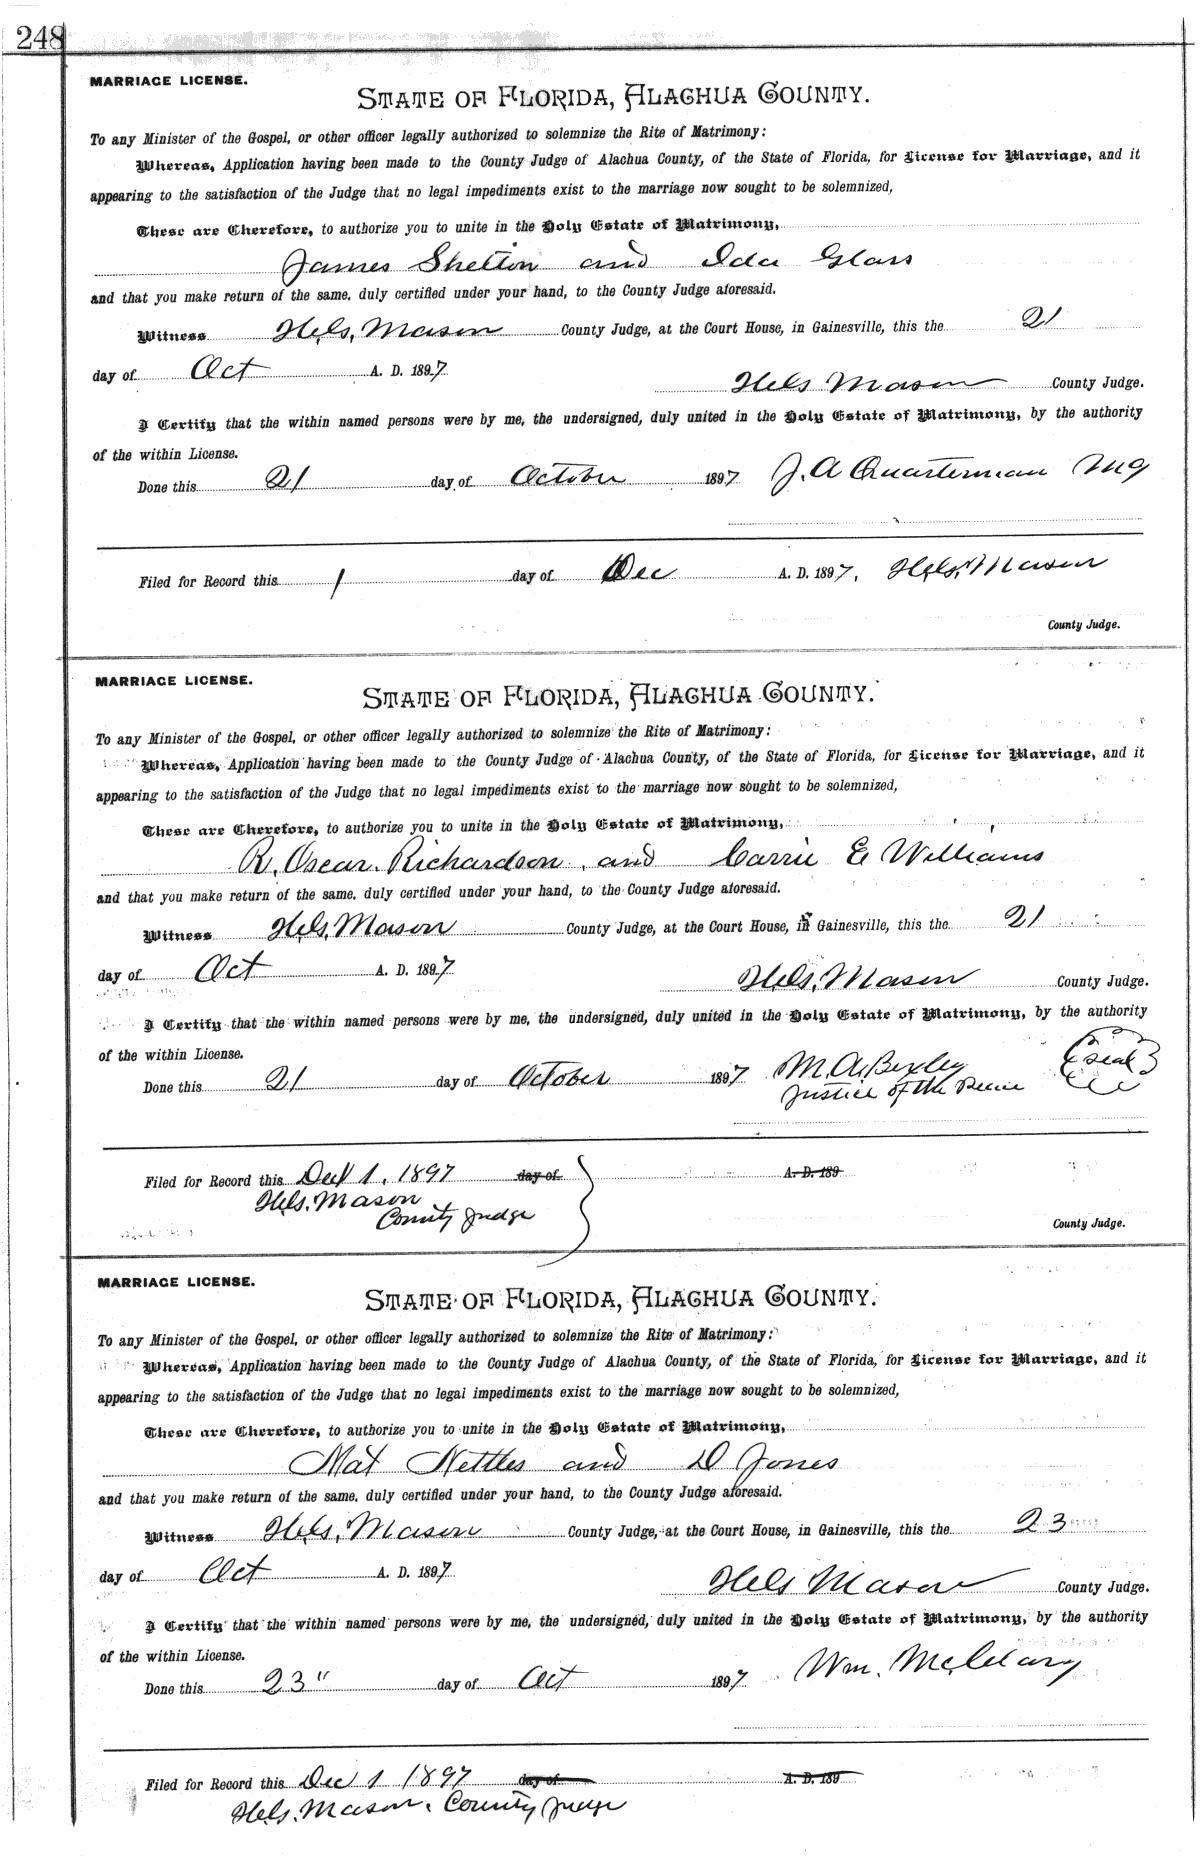 248
MARRIAGE LICENSE.
STATE OF FLORIDA, ALACHUA COUNTY.
To any Minister of the Gospel, or other officer legally authorized to solemnize the Rite of Matrimony:
Whereas, Application having been made to the County Judge of Alachua County, of the State of Florida, for License for Marriage, and it
appearing to the satisfaction of the Judge that no legal impediments exist to the marriage now sought to be solemnized,
These are Therefore, to authorize you to unite in the Holy Estate of Matrimony,
James Shelton and Ida Glass
and that you make return of the same, duly certified under your hand, to the County Judge aforesaid.
Witness Mason County Judge, at the Court House, in Gainesville, this the 21
day of Oct A. D. 1897
Mason County Judge.
I Certify that the within named persons were by me, the undersigned, duly united in the Holy Estate of Matrimony, by the authority
of the within License.
Done this 21 day of October 1897 J. A Quarterman M G
Filed for Record this 1 day of Dec A. D. 1897, Mason
County Judge.
MARRIAGE LICENSE.
STATE OF FLORIDA, ALACHUA COUNTY.
To any Minister of the Gospel, or other officer legally authorized to solemnize the Rite of Matrimony:
Whereas, Application having been made to the County Judge of Alachua County, of the State of Florida, for License for Marriage, and it
appearing to the satisfaction of the Judge that no legal impediments exist to the marriage now sought to be solemnized,
These are Therefore, to authorize you to unite in the Holy Estate of Matrimony,
R. Oscar. Richardson and Carrie E Williams
and that you make return of the same, duly certified under your hand, to the County Judge aforesaid.
Witness Mason County Judge, at the Court House, in Gainesville, this the 21
day of Oct A. D. 1897
Mason County Judge.
I Certify that the within named persons were by me, the undersigned, duly united in the Holy Estate of Matrimony, by the authority
of the within License.
Done this 21 day of October 1897 M. A. Bexley seal
Justice of the Peace
Filed for Record this Dec 1, 1897 day of A. D. 189
Mason
County Judge
County Judge.
MARRIAGE LICENSE.
STATE OF FLORIDA, ALACHUA COUNTY.
To any Minister of the Gospel, or other officer legally authorized to solemnize the Rite of Matrimony:
Whereas, Application having been made to the County Judge of Alachua County, of the State of Florida, for License for Marriage, and it
appearing to the satisfaction of the Judge that no legal impediments exist to the marriage now sought to be solemnized,
These are Therefore, to authorize you to unite in the Holy Estate of Matrimony,
Mat Nettles and D Jones
and that you make return of the same, duly certified under your hand, to the County Judge aforesaid.
Witness Mason County Judge, at the Court House, in Gainesville, this the 23
day of Oct A. D. 1897
Mason County Judge.
I Certify that the within named persons were by me, the undersigned, duly united in the Holy Estate of Matrimony, by the authority
of the within License.
Done this 23" day of Oct 1897 Wm.
Filed for Record this Dec 1 1897 day of A. D. 189
Mason, County Judge